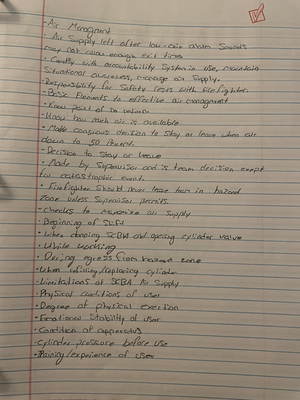 · Air Managment
· Air Supply left after low-air alarm sounds
may not allow enough exit times
· Comply with accountability system in use, maintain
Situational awareness, manage air supply.
· Responsibility for Safety rests with firefighter
· Basic Elements to effective air management
· Know point of no return
· Know how much air is available
· Make conscious decision to stay or leave when air
down to 50 percent.
· Decision to stay or leave
· Made by Supervisor and is team decision exept
for catastrophic event.
· Firefighter should never leave team in hazard
zone unless Supervisor permits.
· checks to maximize air supply
· Beginning of shift
· When donning SCBA and opening cylinder valve
· While working
· During egress from hazard zone
· When refilling/replacing cylinder
· Limitations of SCBA Air Supply
· Physical conditions of user
· Degree of physical exertion
· Emotional stability of user
· Condition of apparatus
· Cylinder pressure before use
· Training/experience of user